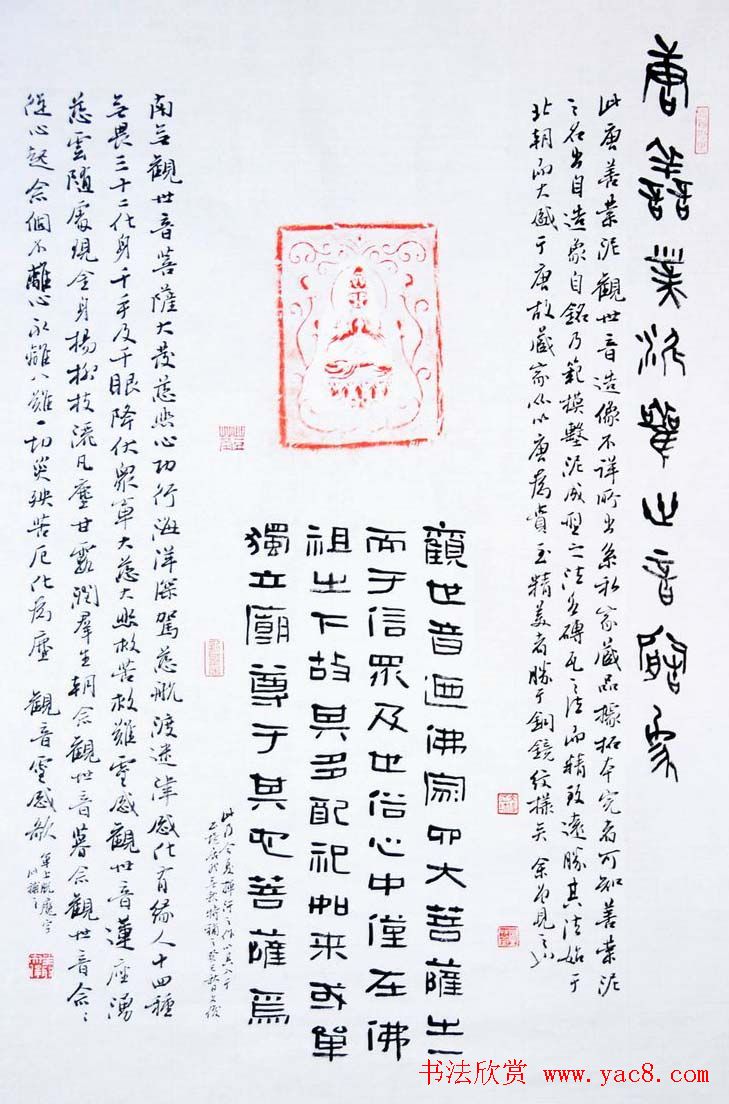 唐善業泥觀世音造象
此唐善業泥觀世音造像不詳所出系私家藏品據拓本究者可知善業泥
之名出自造象自銘乃範模墼泥成型之法如磚瓦之法而精致遠勝其法始于
北朝而大盛于唐故藏家必以唐為貴至精美者勝于銅鏡紋樣矣余曾見之
觀世音乃佛家四大菩薩之一
而于信眾及世俗心中僅在佛
祖之下故其多配祀如來或單
獨立廟尊于其他菩薩焉
此乃今夏
南無觀世音菩薩大發慈悲心功行海洋深駕慈航渡迷津感化有緣人十四種
無畏三十二化身千手及千眼降伏眾軍大慈大悲救苦救難靈感觀世音蓮座湧
慈雲隨處現全身楊柳枝灑凡塵甘露潤群生朝念觀世音暮念觀世音念念
從心起念佛不離心永離八難一切災殃苦厄化為塵 觀音靈感歌
书法欣赏 www.yac8.com